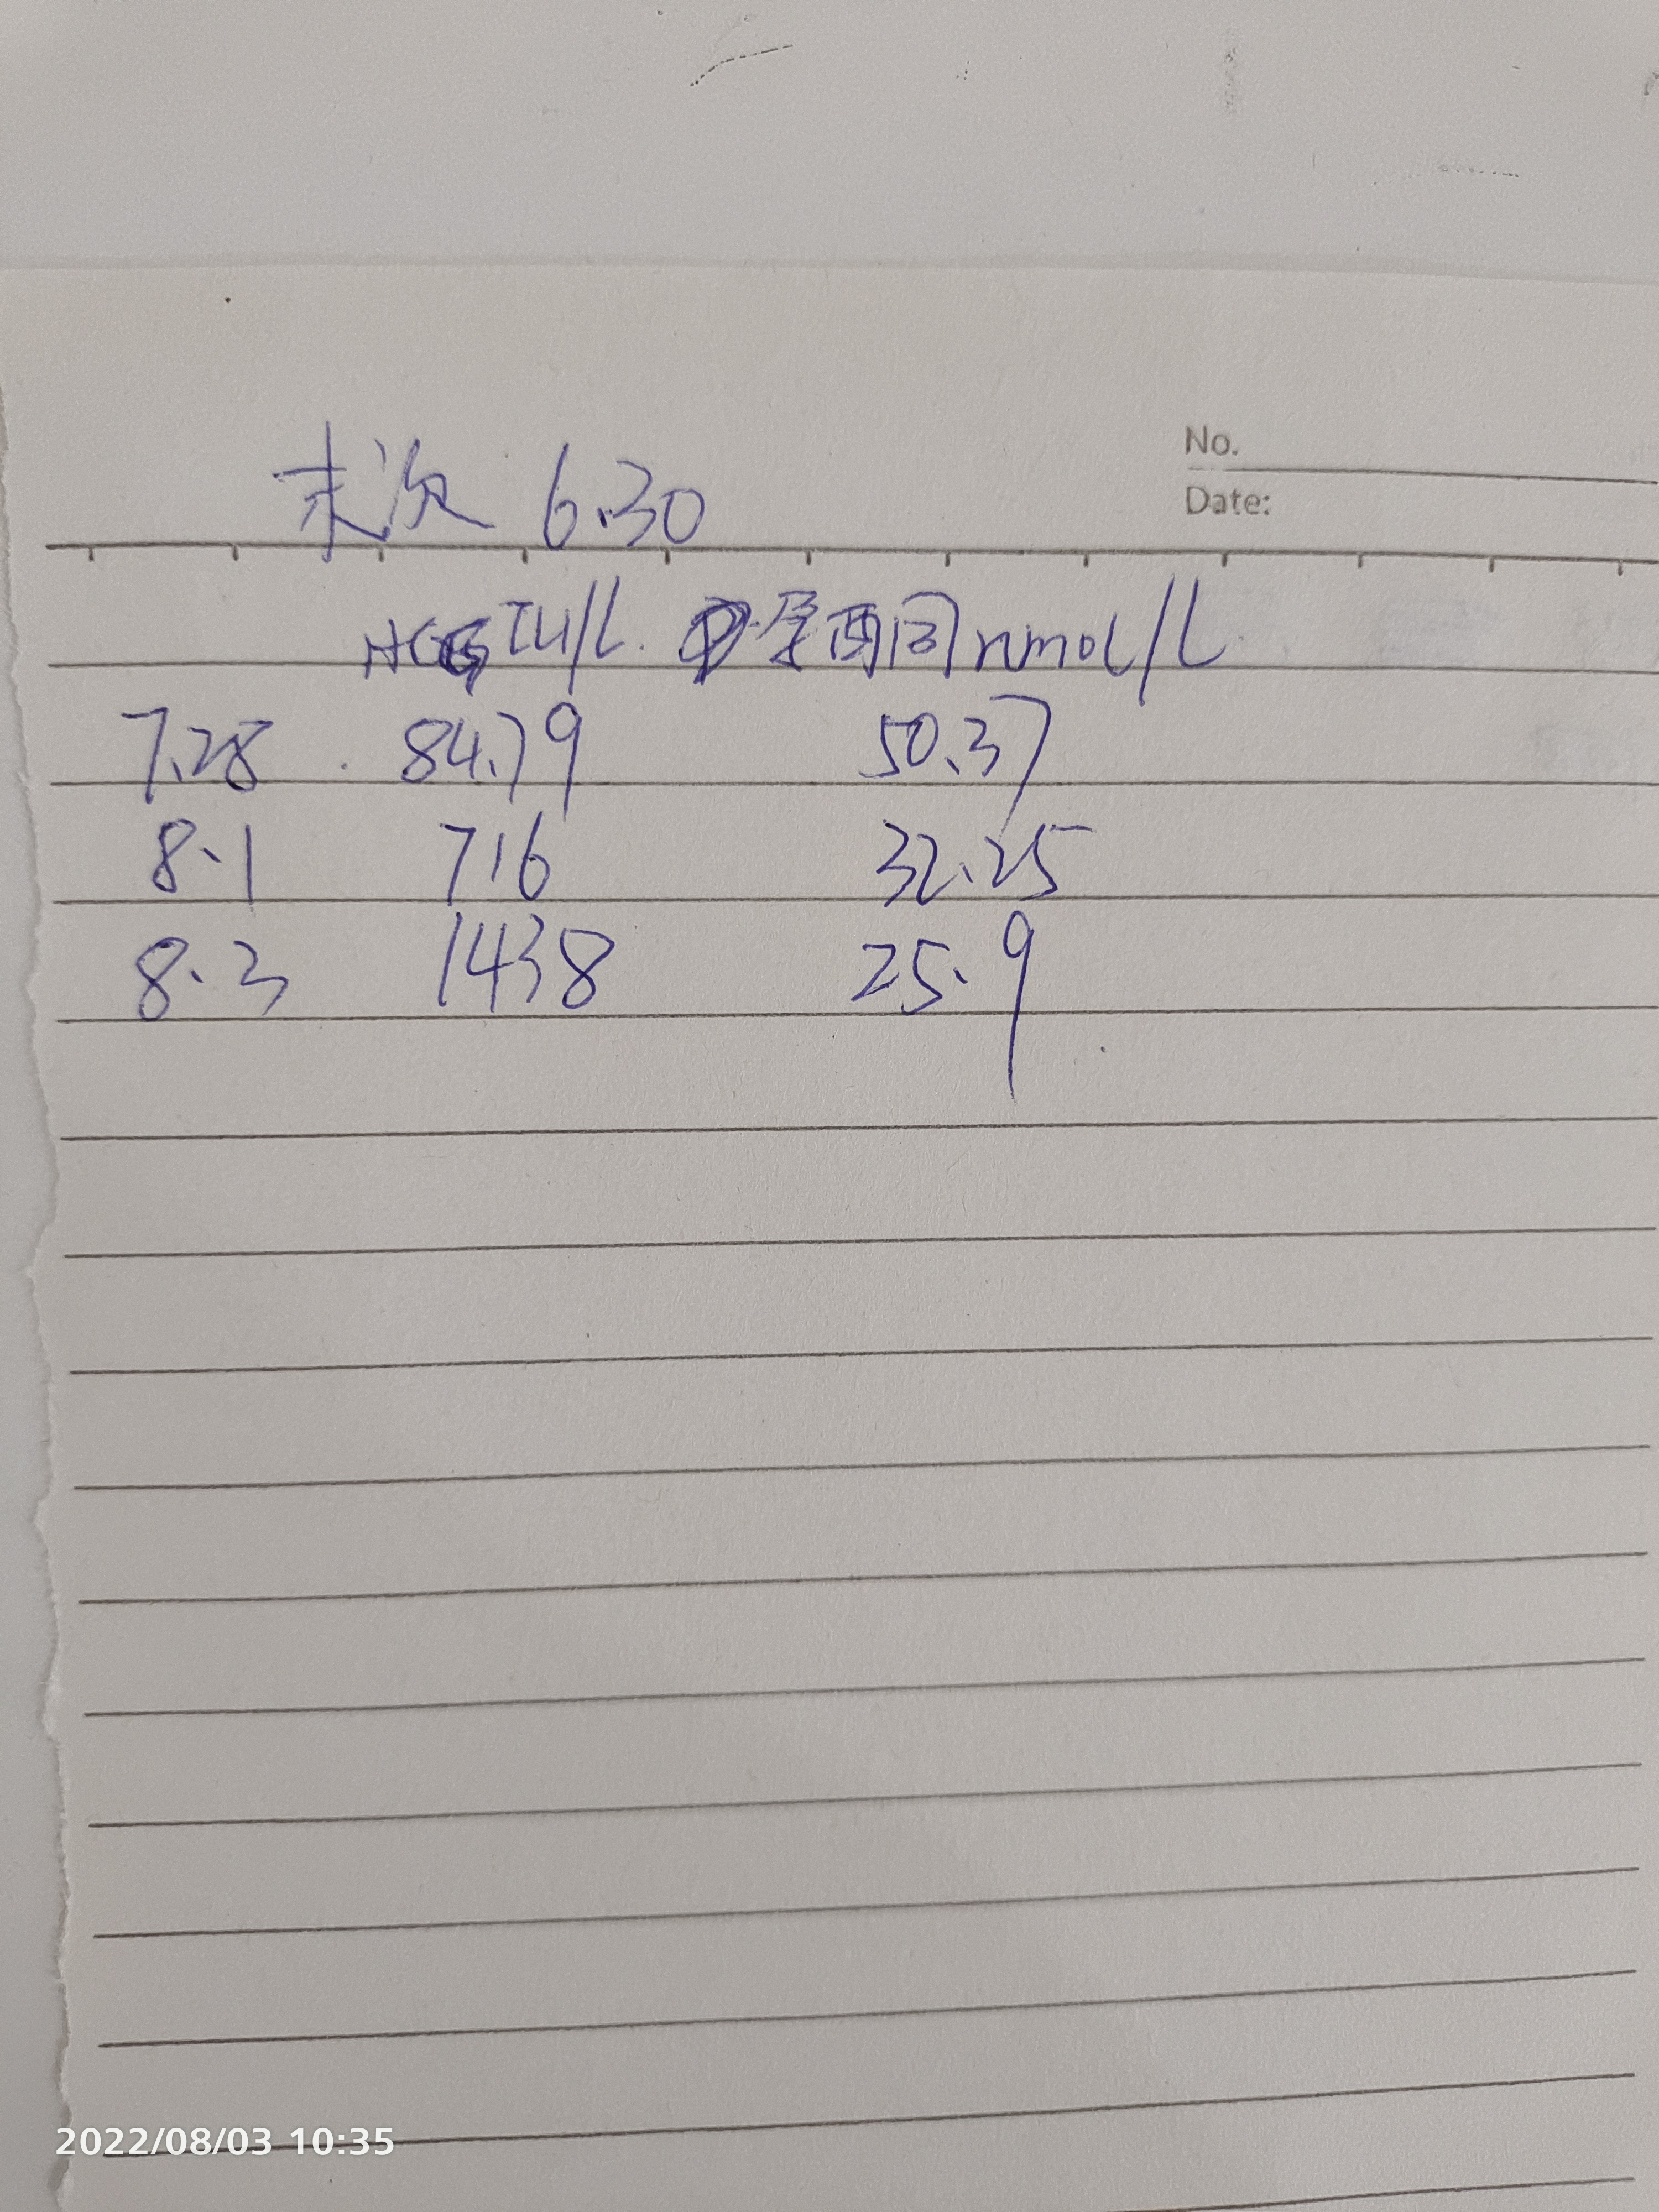 No.
末次 6.30
Date:
HCG IU/L. 孕酮 nmol/L
7.28 84.79 50.37
8.1 716 32.25
8.3 1438 25.9
2022/08/03 10:35